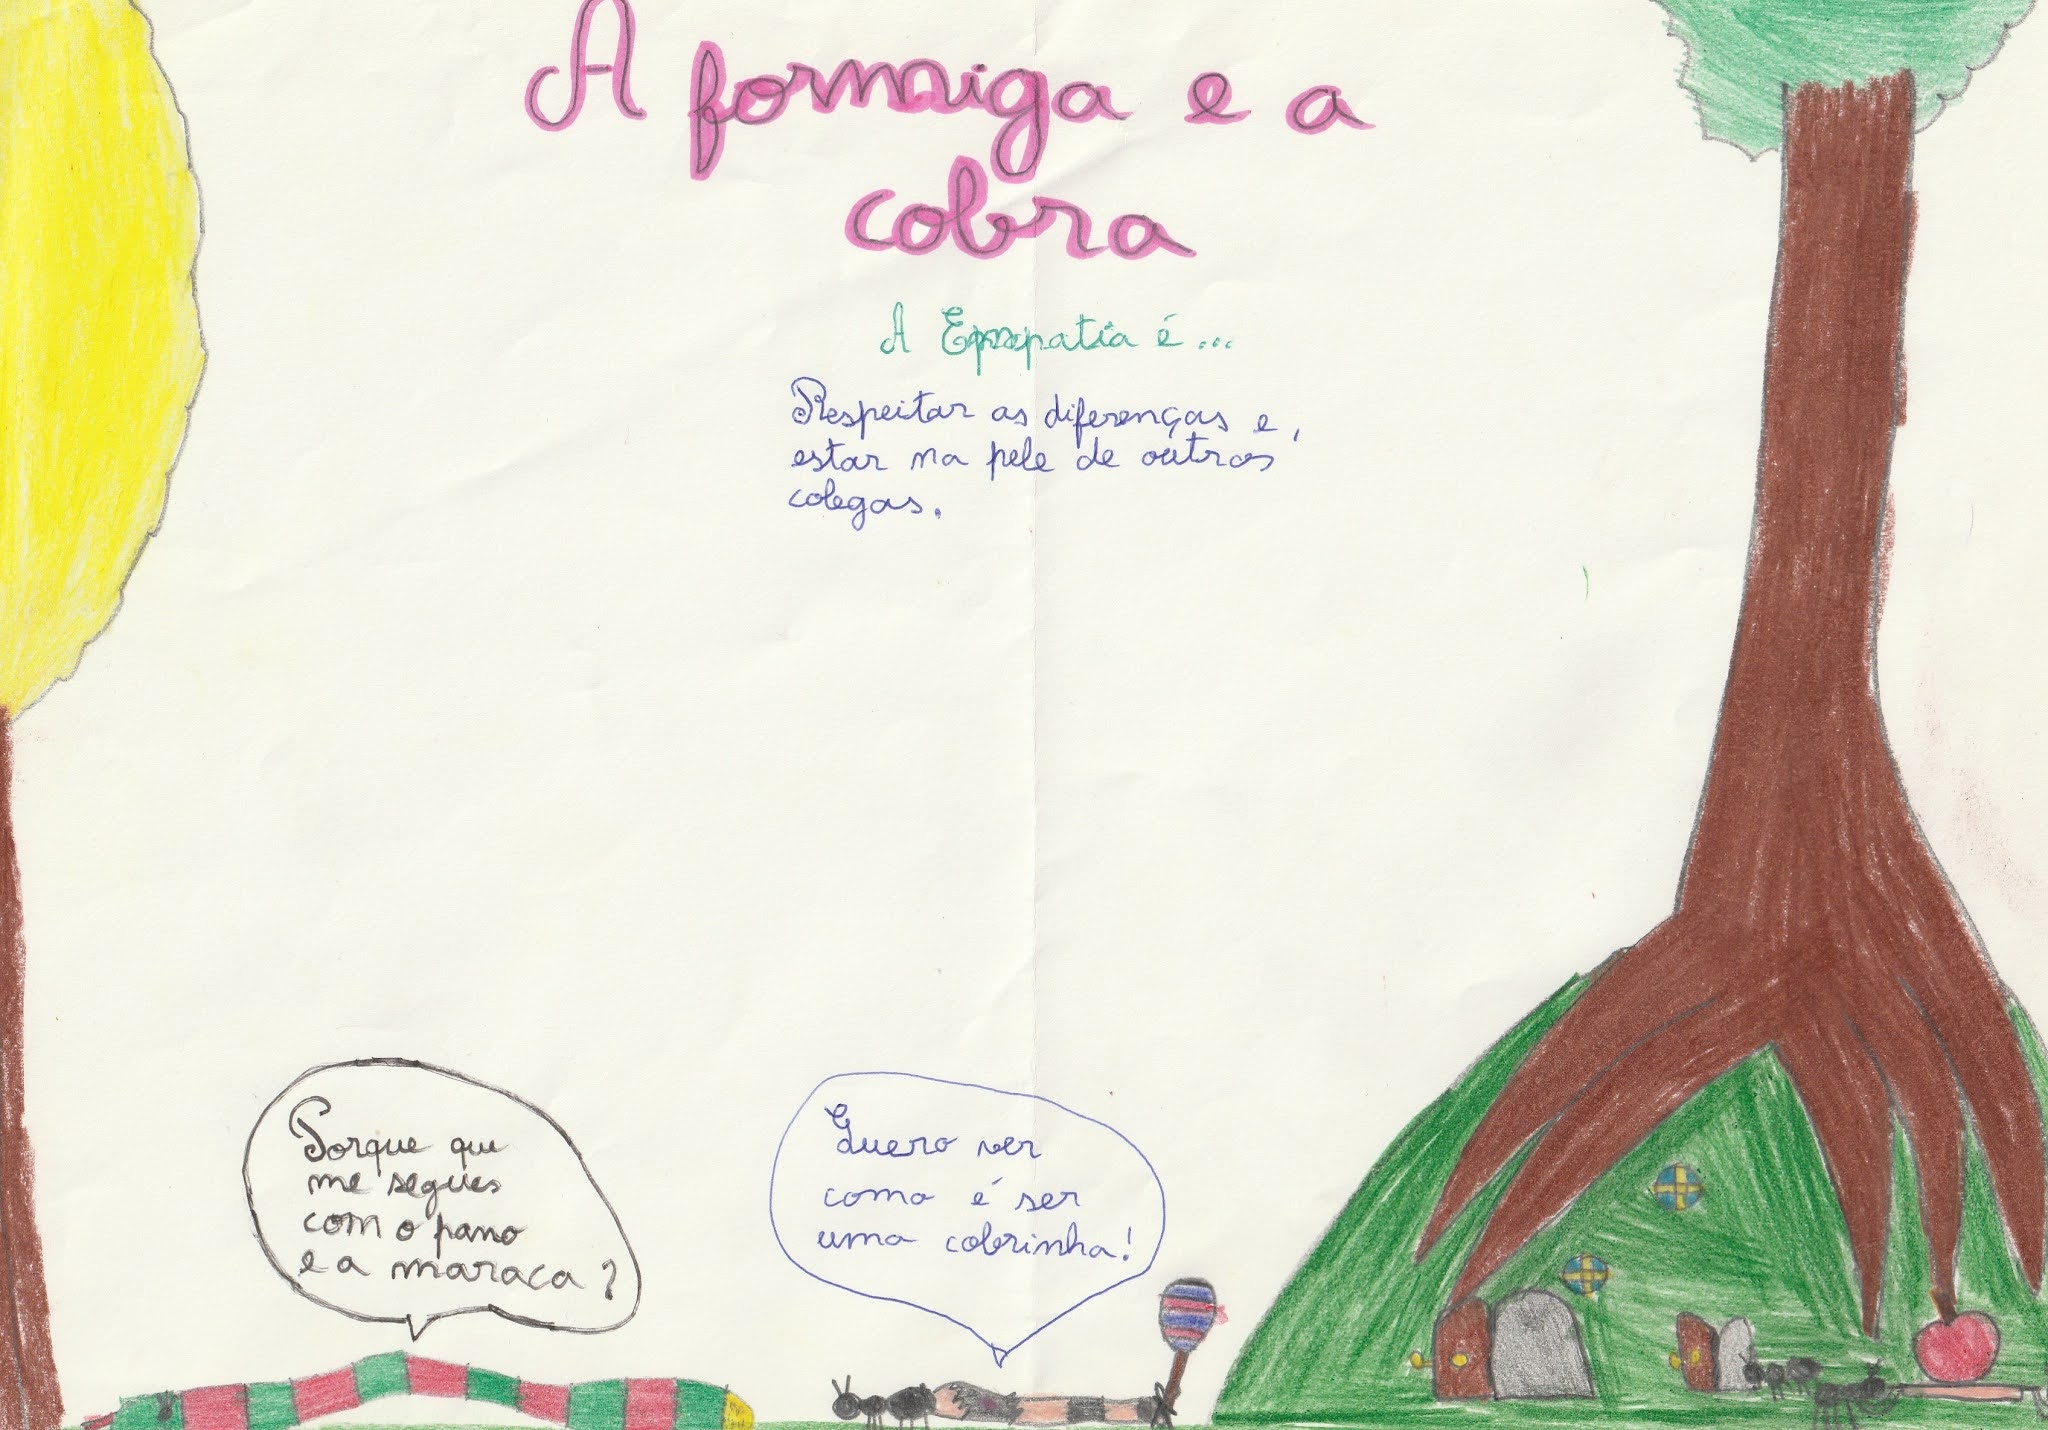 A formiga e a
cobra
A Empatia é...
Respeitar as diferenças e,
estar na pele de outros
colegas.
Porque que
me segues
com o pano
e a maraca?
Quero ver
como é ser
uma cobrinha!